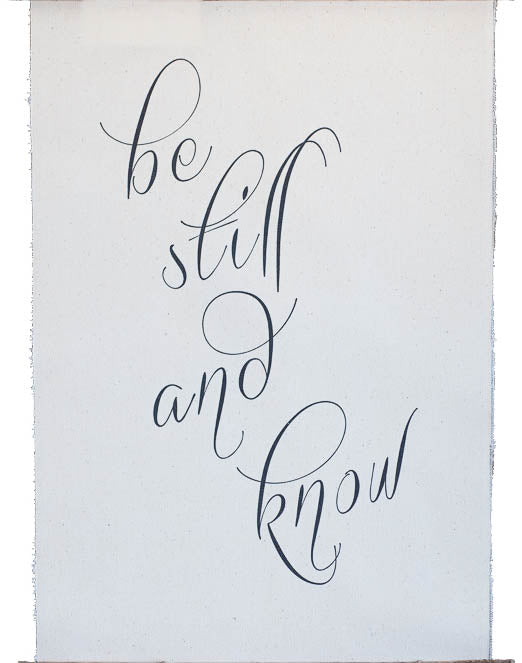 be
still
and
know